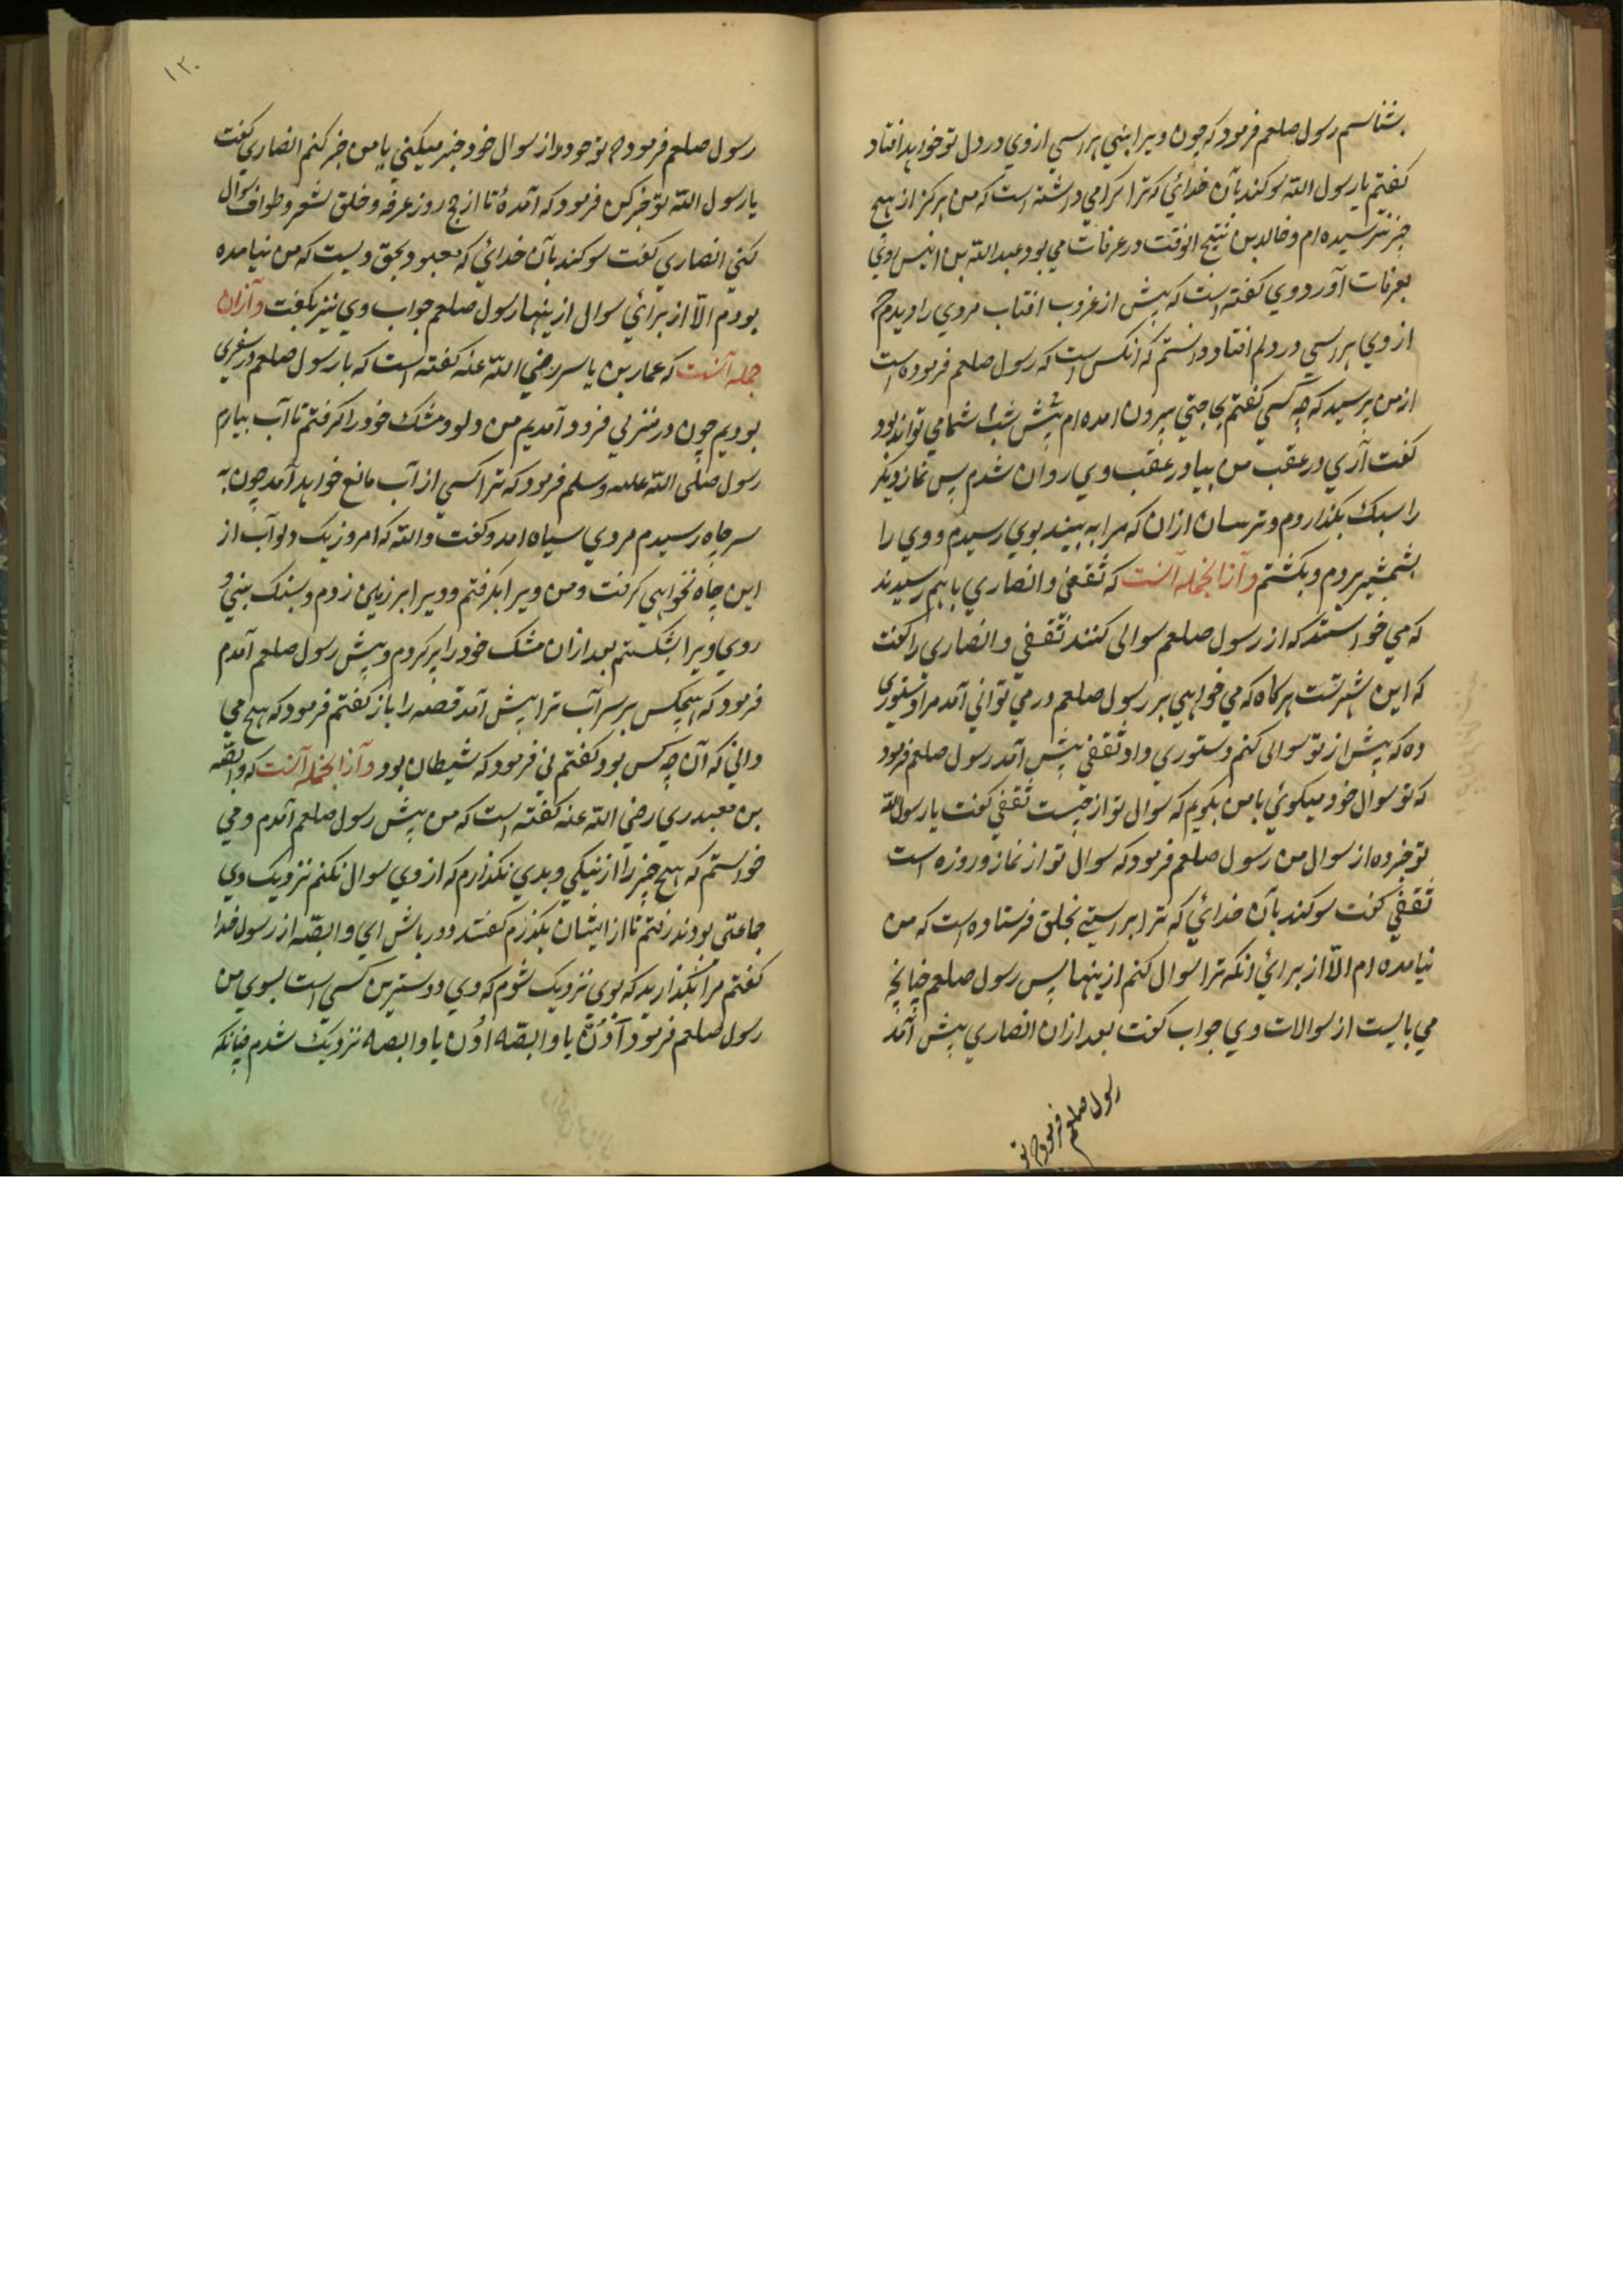 بشناسم رسول صلعم فرمود که چون ویرا بینی هراسی از وی در دل تو خواهد افتاد
کفتم یا رسول الله سوکند بآن خدائی که ترا کرامی داشته است که من هرکز از هیچ
چیز نترسیده ام و خالد بن نتیح انوقت در عرفات می بود عبد الله بن انیس روی
بعرفات آورد وی کفته است که پیش از غروب افتاب مردی را دیدم که
از وی هراسی در دلم افتاد دانستم که انکس است که رسول صلعم فرموده است
از من پرسید که چه کسی کفتم بحاجتی بیرون امده ام پیش شما شب می تواند بود
کفت آری در عقب من بیا در عقب وی روان شدم پس نماز دیکر
را سبک بکذاردم و ترسان ازان که مرا به بیند بوی رسیدم و وی را
بشمشیر بزدم و بکشتم و ازانجمله آنست که ثقفی و انصاری باهم رسیدند
که می خواستند که از رسول صلعم سوالی کنند ثقفی و انصاری را کفت
که این شهر تست هرکاه که می خواهی بر رسول صلعم در می توانی آمد مرا دستوری
ده که پیش از تو سوالی کنم دستوری داد ثقفی پیش آمد رسول صلعم فرمود
که تو سوال خود میکوئی یا من بکویم که سوال تو از چیست ثقفی کفت یا رسول الله
تو خبر ده از سوال من رسول صلعم فرمود که سوال تو از نماز و روزه است
ثقفی کفت سوکند بآن خدائی که ترا براستی بخلق فرستاده است که من
نیامده ام الّا از برائی انکه ترا سوال کنم ازینها پس رسول صلعم چنانچه
می بایست از سوالات وی جواب کفت بعد ازان انصاری پیش آمد
رسول صلعم فرمود که تو
۱۳۰
رسول صلعم فرمود که تو خود از سوال خود خبر میکنی یا من خبر کنم انصاری کفت
یا رسول الله تو خبر کن فرمود که آمدهٔ تا از حج روز عرفه و حلق شعر و طواف سوال
کنی انصاری کفت سوکند بآن خدائی که معبود بحق ویست که من نیامده
بودم الّا از برائی سوال ازینها رسول صلعم جواب وی نیز بکفت و ازان
جمله آنست که عمار بن یاسر رضی الله عنه کفته است که با رسول صلعم در سفری
بودیم چون در منزلی فرود آمدیم من دلو و مشک خود را کرفتم تا آب بیارم
رسول صلی الله علیه وسلم فرمود که ترا کسی از آب مانع خواهد آمد چون به
سر چاه رسیدم مردی سیاه امد و کفت والله که امروز یک دلو آب از
این چاه نخواهی کرفت و من ویرا بکرفتم و ویرا بر زمین زدم و بسنک بینی و
روی ویرا بشکستم بعد ازان مشک خود را پر کردم و پیش رسول صلعم آمدم
فرمود که هیچکس بر سر آب ترا پیش آمد قصه را باز کفتم فرمود که هیچ می
دانی که آن چه کس بود کفتم نی فرمود که شیطان بود و ازانجمله آنست که وابصّه
بن معبدری رضی الله عنه کفته است که من پیش رسول صلعم آمدم و می
خواستم که هیچ چیز را از نیکی و بدی نکذارم که از وی سوال نکنم نزدیک وی
جماعتی بودند رفتم تا از ایشان بکذرم کفتند دور باش ای وابصّه از رسول خدا
کفتم مرا بکذارید که بوی نزدیک شوم که وی دوسترین کسی است بسوی من
رسول صلعم فرمود اُدْنُ یا وابصّه اُدن یا وابصه نزدیک شدم چنانکه